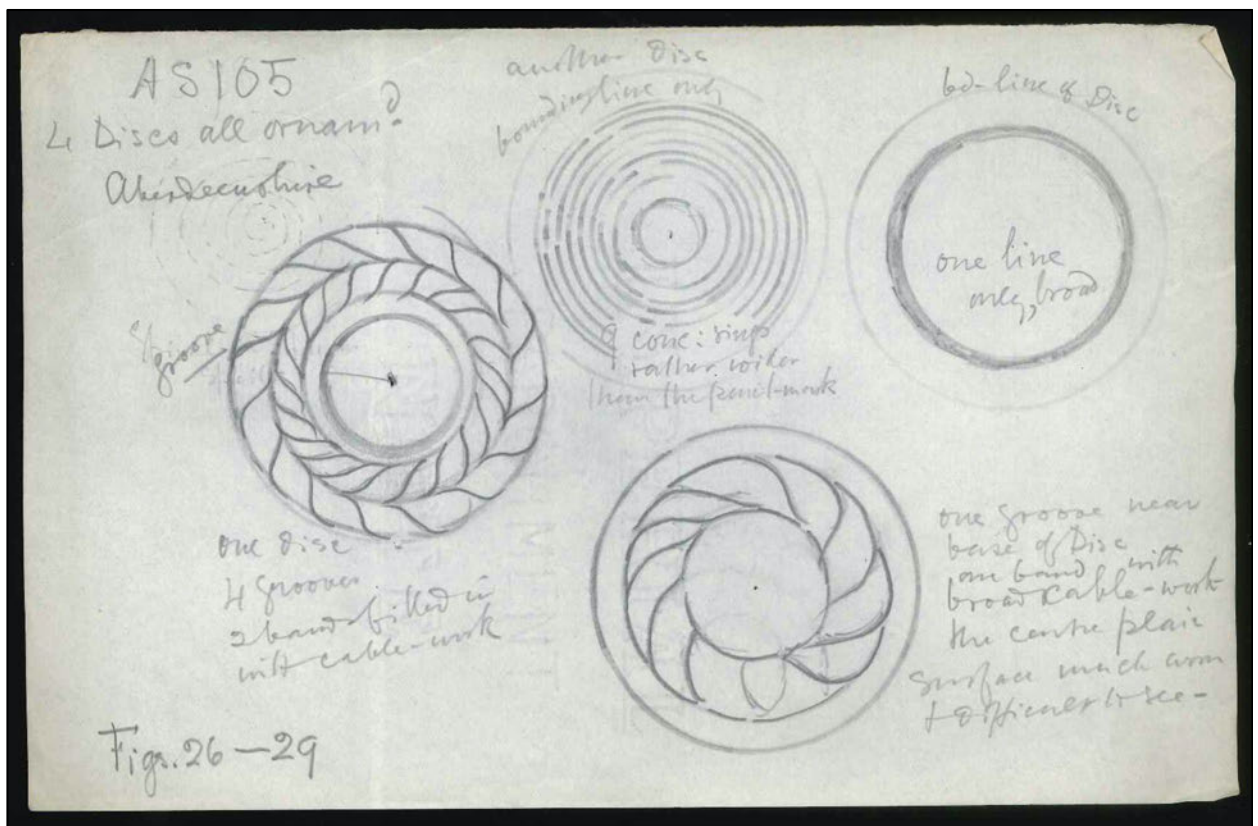 AS105
4 Discs all ornamd
Aberdeenshire
another Disc
bounding line only
bd-line of Disc
groove
9 conc: rings
rather wider
than the pencil-mark
one line
only, broad
one Disc
4 grooves
2 bands filled in
with cable-work
one groove near
base of Disc
one band with
broad cable-work
the centre plain
surface much worn
& difficult to see -
Figs. 26-29